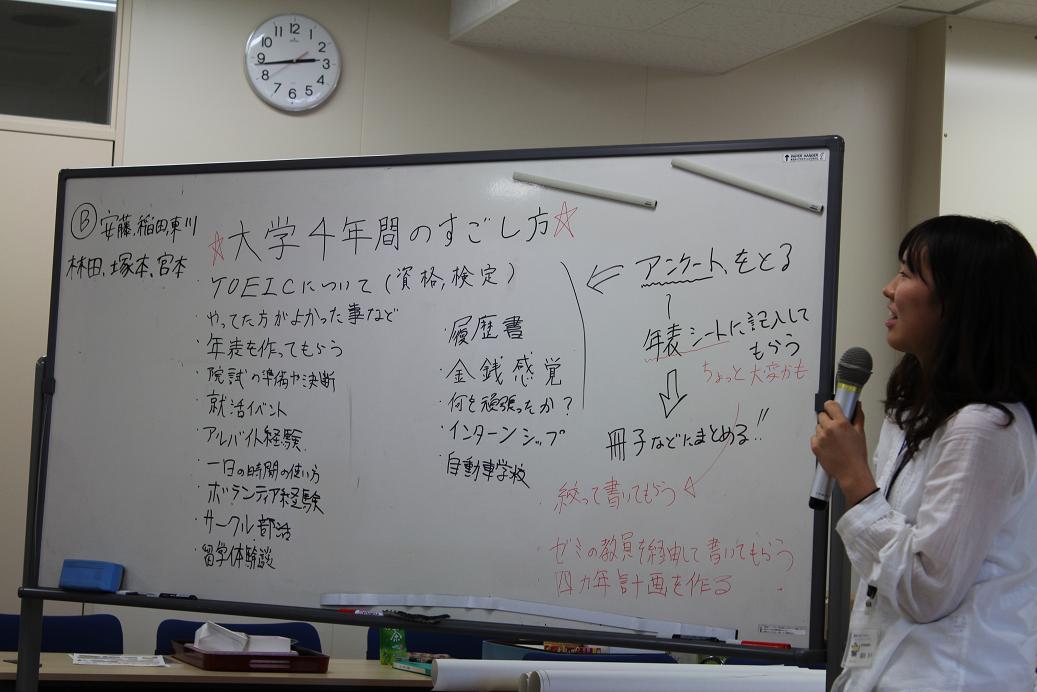 Ⓑ 安藤、稲田、東川
林田、塚本、宮本
☆大学4年間のすごし方☆
・TOEICについて(資格、検定)
・やってた方がよかった事など
・年表を作ってもらう
・院試の準備や決断
・就活イベント
・アルバイト経験
・一日の時間の使い方
・ボランティア経験
・サークル、部活
・留学体験談
・履歴書
・金銭感覚
・何を頑張ったか?
・インターンシップ
・自動車学校
アンケートをとる
年表シートに記入して
もらう
ちょっと大変かも
冊子などにまとめる!!
・絞って書いてもらう
・ゼミの教員を経由して書いてもらう
・四カ年計画を作る
12
1
2
3
4
5
6
7
8
9
10
11
茶